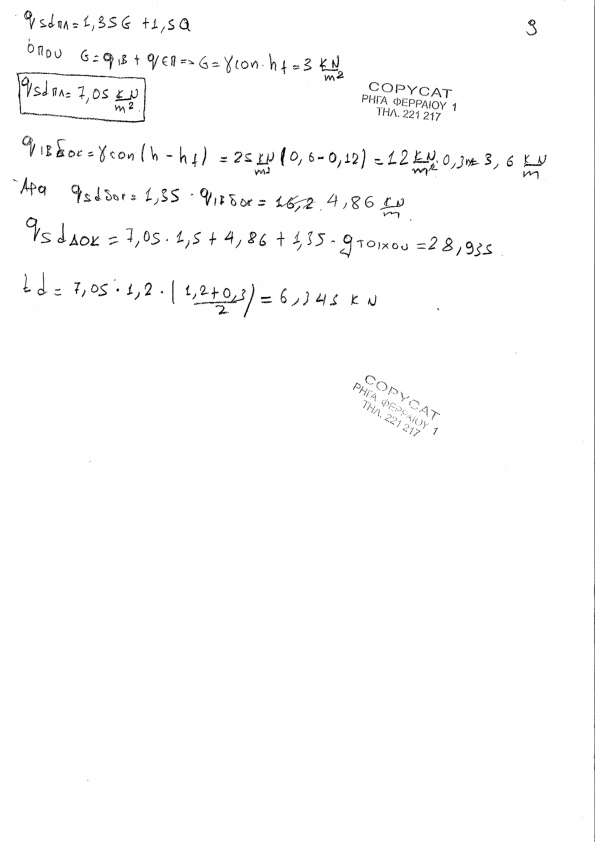 q sdπλ = 1,35G + 1,5Q
9
όπου G = qιβ + qεπ => G = γcon · hf = 3 KN/m²
qsdπλ = 7,05 KN/m²
COPYCAT
ΡΗΓΑ ΦΕΡΡΑΙΟΥ 1
ΤΗΛ. 221 217
qιβδοκ = γcon (h - hf) = 25 KN/m³ (0,6 - 0,12) = 12 KN/m² · 0,3m = 3,6 KN/m
Άρα qsdδοκ = 1,35 · qιβδοκ = 16,2 4,86 KN/m
qsdΔΟΚ = 7,05 · 1,5 + 4,86 + 1,35 · gτοιχου = 28,935
td = 7,05 · 1,2 · (1,2+0,3)/2) = 6,345 KN
COPYCAT
ΡΗΓΑ ΦΕΡΡΑΙΟΥ 1
ΤΗΛ. 221 217